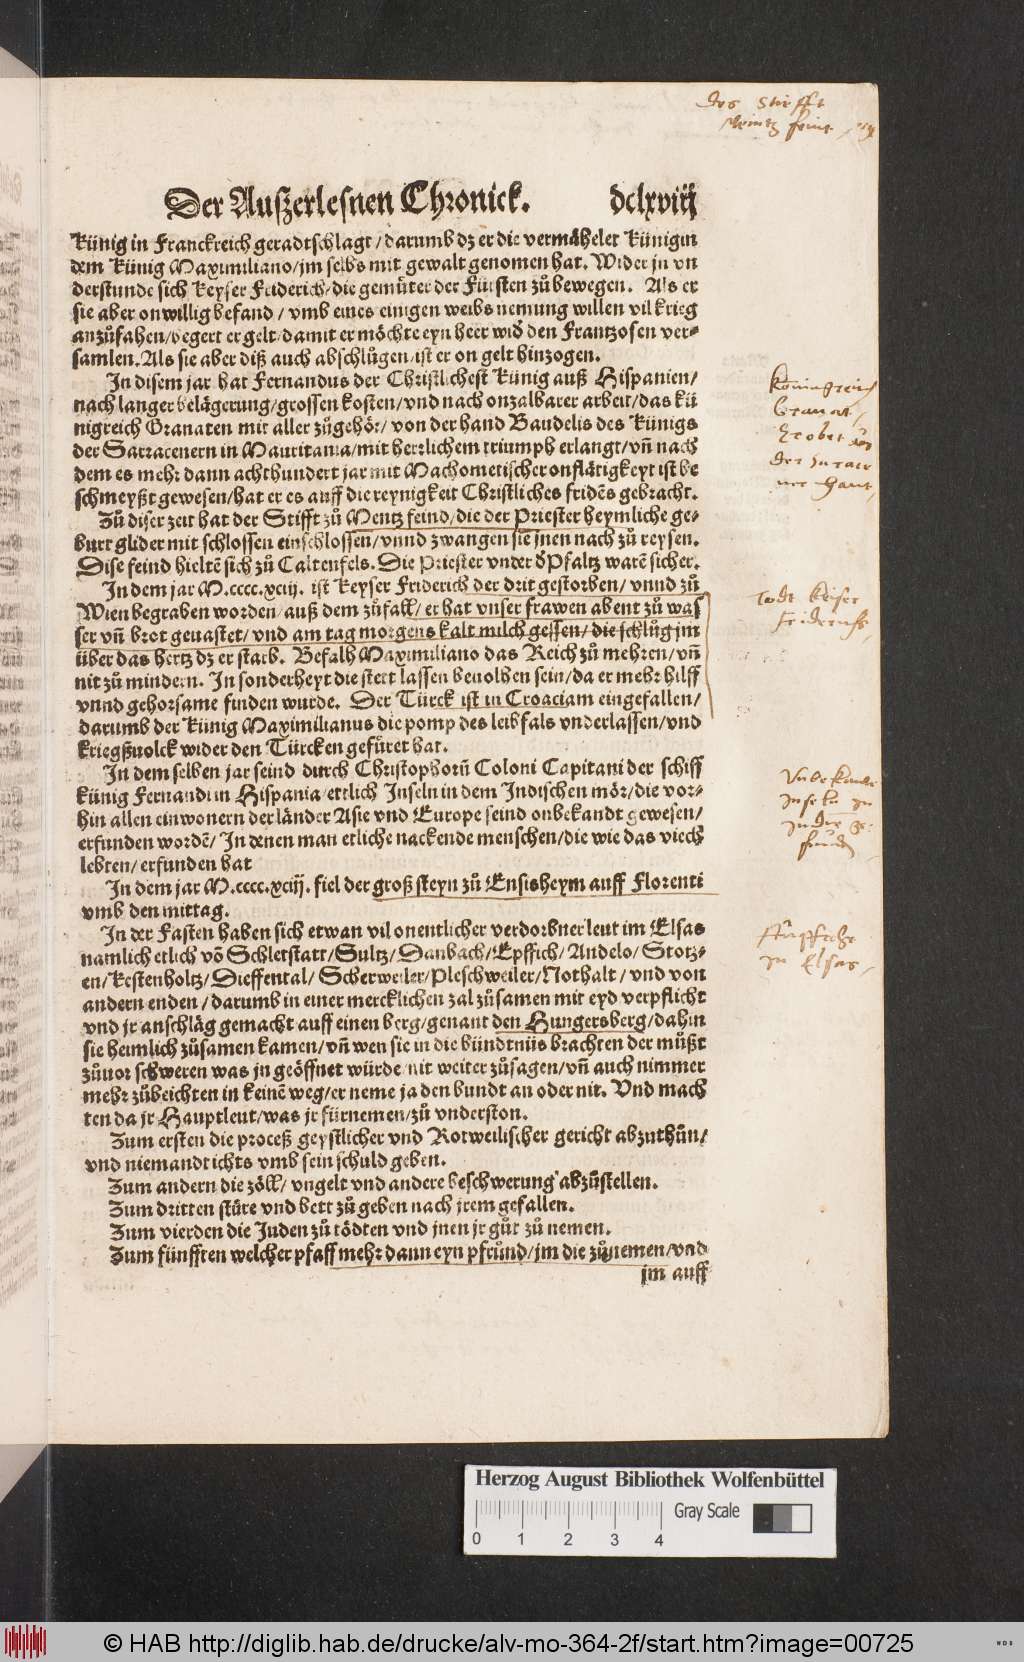 des Stiffts
Mentz feint
Der Auszerlesnen Chronick. dclxviij
Künig in Franckreich geradtschlagt / darumb dz er die vermåhelet Künigin
dem Künig Maximiliano / jm selbs mit gewalt genomen hat. Wider jn vn
derstunde sich Keyser Friderich / die gemůter der Fürsten zů bewegen. Als er
sie aber onwillig befand / vmb eines einigen weibs nemung willen vil krieg
anzůfahen / begert er gelt / damit er möchte eyn heer wid̄ den Frantzosen ver-
samlen. Als sie aber diß auch abschlůgen / ist er on gelt hinzogen.
In disem jar hat Fernandus der Christlichest Künig auß Hispanien /
nach langer belägerung / grossen kosten / vnd nach onzalbarer arbeit / das kü
nigreich Granaten mit aller zůgehör / von der hand Baudelis des Künigs
der Sarracenern in Mauritania / mit herrlichem triumph erlangt / vñ nach
dem es mehr dann achthundert jar mit Machometischer onflätigkeyt ist be
schmeyßt gewesen / hat er es auff die reynigkeit Christliches fridēs gebracht.
Zů diser zeit hat der Stifft zů Mentz feind / die der Priester heymliche ge-
burt glider mit schlossen einschlossen / vnnd zwangen sie jnen nach zů reysen.
Dise feind hieltē sich zů Caltenfels. Die Priester vnder d̄ Pfaltz warē sicher.
In dem jar M.cccc.xciij. ist Keyser Friderich der drit gestorben / vnnd zů
Wien begraben worden / auß dem zůfall / er hat vnser frawen abent zů was
ser vñ brot geuastet / vnd am tag morgens kalt milch gessen / die schlůg jm
über das hertz dz er starb. Befalh Maximiliano das Reich zů mehren / vñ
nit zů mindern. In sonderheyt die stett lassen beuolhen sein / da er mehr hilff
vnnd gehorsame finden wurde. Der Türck ist in Croaciam eingefallen /
darumb der Künig Maximilianus die pomp des leibfals vnderlassen / vnd
kriegßuolck wider den Türcken gefůret hat.
In dem selben jar seind durch Christophorū Coloni Capitani der schiff
künig Fernandi in Hispania etlich Inseln in dem Indischen mör / die vor-
hin allen einwonern der länder Asie vnd Europe seind onbekandt gewesen /
erfunden wordē / In denen man etliche nackende menschen / die wie das viech
lebten / erfunden hat
In dem jar M.cccc.xciij. fiel der groß steyn zů Ensisheym auff Florenti
vmb den mittag.
In der Fasten haben sich etwan vil onentlicher verdorbner leut im Elsas
namlich etlich võ Schletstatt / Sultz / Danbach / Epffich / Andelo / Stotz-
en / Kestenholtz / Dieffental / Scherweiler / Pleschweiler / Nothalt / vnd von
andern enden / darumb in einer mercklichen zal zůsamen mit eyd verpflicht
vnd jr anschläg gemacht auff einen berg / genant den Hungersberg / dahin
sie heimlich zůsamen kamen / vñ wen sie in die bündtnüs brachten der můßt
zůuor schweren was jn geöffnet würde nit weiter zůsagen / vñ auch nimmer
mehr zůbeichten in keinē weg / er neme ja den bundt an oder nit. Vnd mach
ten da jr Hauptleut / was jr fürnemen / zů vnderston.
Zum ersten die proceß geystlicher vnd Rotweilischer gericht abzuthůn /
vnd niemandt ichts vmb sein schuld geben.
Zum andern die zöll / vngelt vnd andere beschwerung abzůstellen.
Zum dritten stüre vnd bett zů geben nach jrem gefallen.
Zum vierden die Juden zů tödten vnd jnen jr gůt zů nemen.
Zum fünfften welcher pfaff mehr dann eyn pfründ / jm die zůnemen / vnd
jm auff
Königreich
Granat
Erobet
der Sarace
ner
Todt Keiser
Friderichs
Unbekante
Inseln in
Indie ge-
funden
in Elsas
Herzog August Bibliothek Wolfenbüttel
Gray Scale
0 1 2 3 4
© HAB http://diglib.hab.de/drucke/alv-mo-364-2f/start.htm?image=00725